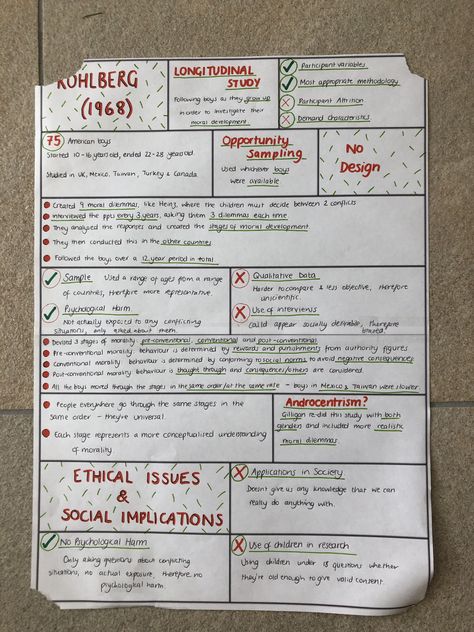 KOHLBERG
(1968)
LONGITUDINAL
STUDY
Following boys as they grow up
in order to investigate their
moral development.
Participant variables
Most appropriate methodology
Participant Attrition
Demand characteristics
75 American boys
Started 10-16 years old, ended 22-28 years old.
Studied in UK, Mexico, Taiwan, Turkey & Canada
Opportunity
Sampling
Used whichever boys
were available
No
Design
Created 9 moral dilemmas, like Heinz, where the children must decide between 2 conflicts
Interviewed the ppts every 3 years, asking them 3 dilemmas each time.
They analysed the responses and created the stages of moral development.
They then conducted this in the other countries
Followed the boys over a 12 year period in total
Sample Used a range of ages from a range
of countries, therefore more representative.
Psychological Harm
Not actually exposed to any conflicting
situations, only asked about them.
Qualitative Data
Harder to compare & less objective, therefore
unscientific.
Use of Interviews
Could appear socially desirable, therefore
biased.
Devised 3 stages of morality: pre-conventional, conventional and post-conventional.
Pre-conventional morality behaviour is determined by rewards and punishments from authority figures
Conventional morality behaviour is determined by conforming to social norms to avoid negative consequences
Post-conventional morality behaviour is thought through and consequences/others are considered.
All the boys moved through the stages in the same order/at the same rate - boys in Mexico & Taiwan were slower.
People everywhere go through the same stages in the
same order - they're universal.
Each stage represents a more conceptualised understanding
of morality.
Androcentrism?
Gilligan re-did this study with both
genders and included more realistic
moral dilemmas.
ETHICAL ISSUES
&
SOCIAL IMPLICATIONS
Applications in Society
Doesn't give us any knowledge that we can
really do anything with.
No Psychological Harm
Only asking questions about conflicting
situations, no actual exposure, therefore no
psychological harm.
Use of children in research
Using children under 18 questions whether
they're old enough to give valid consent.